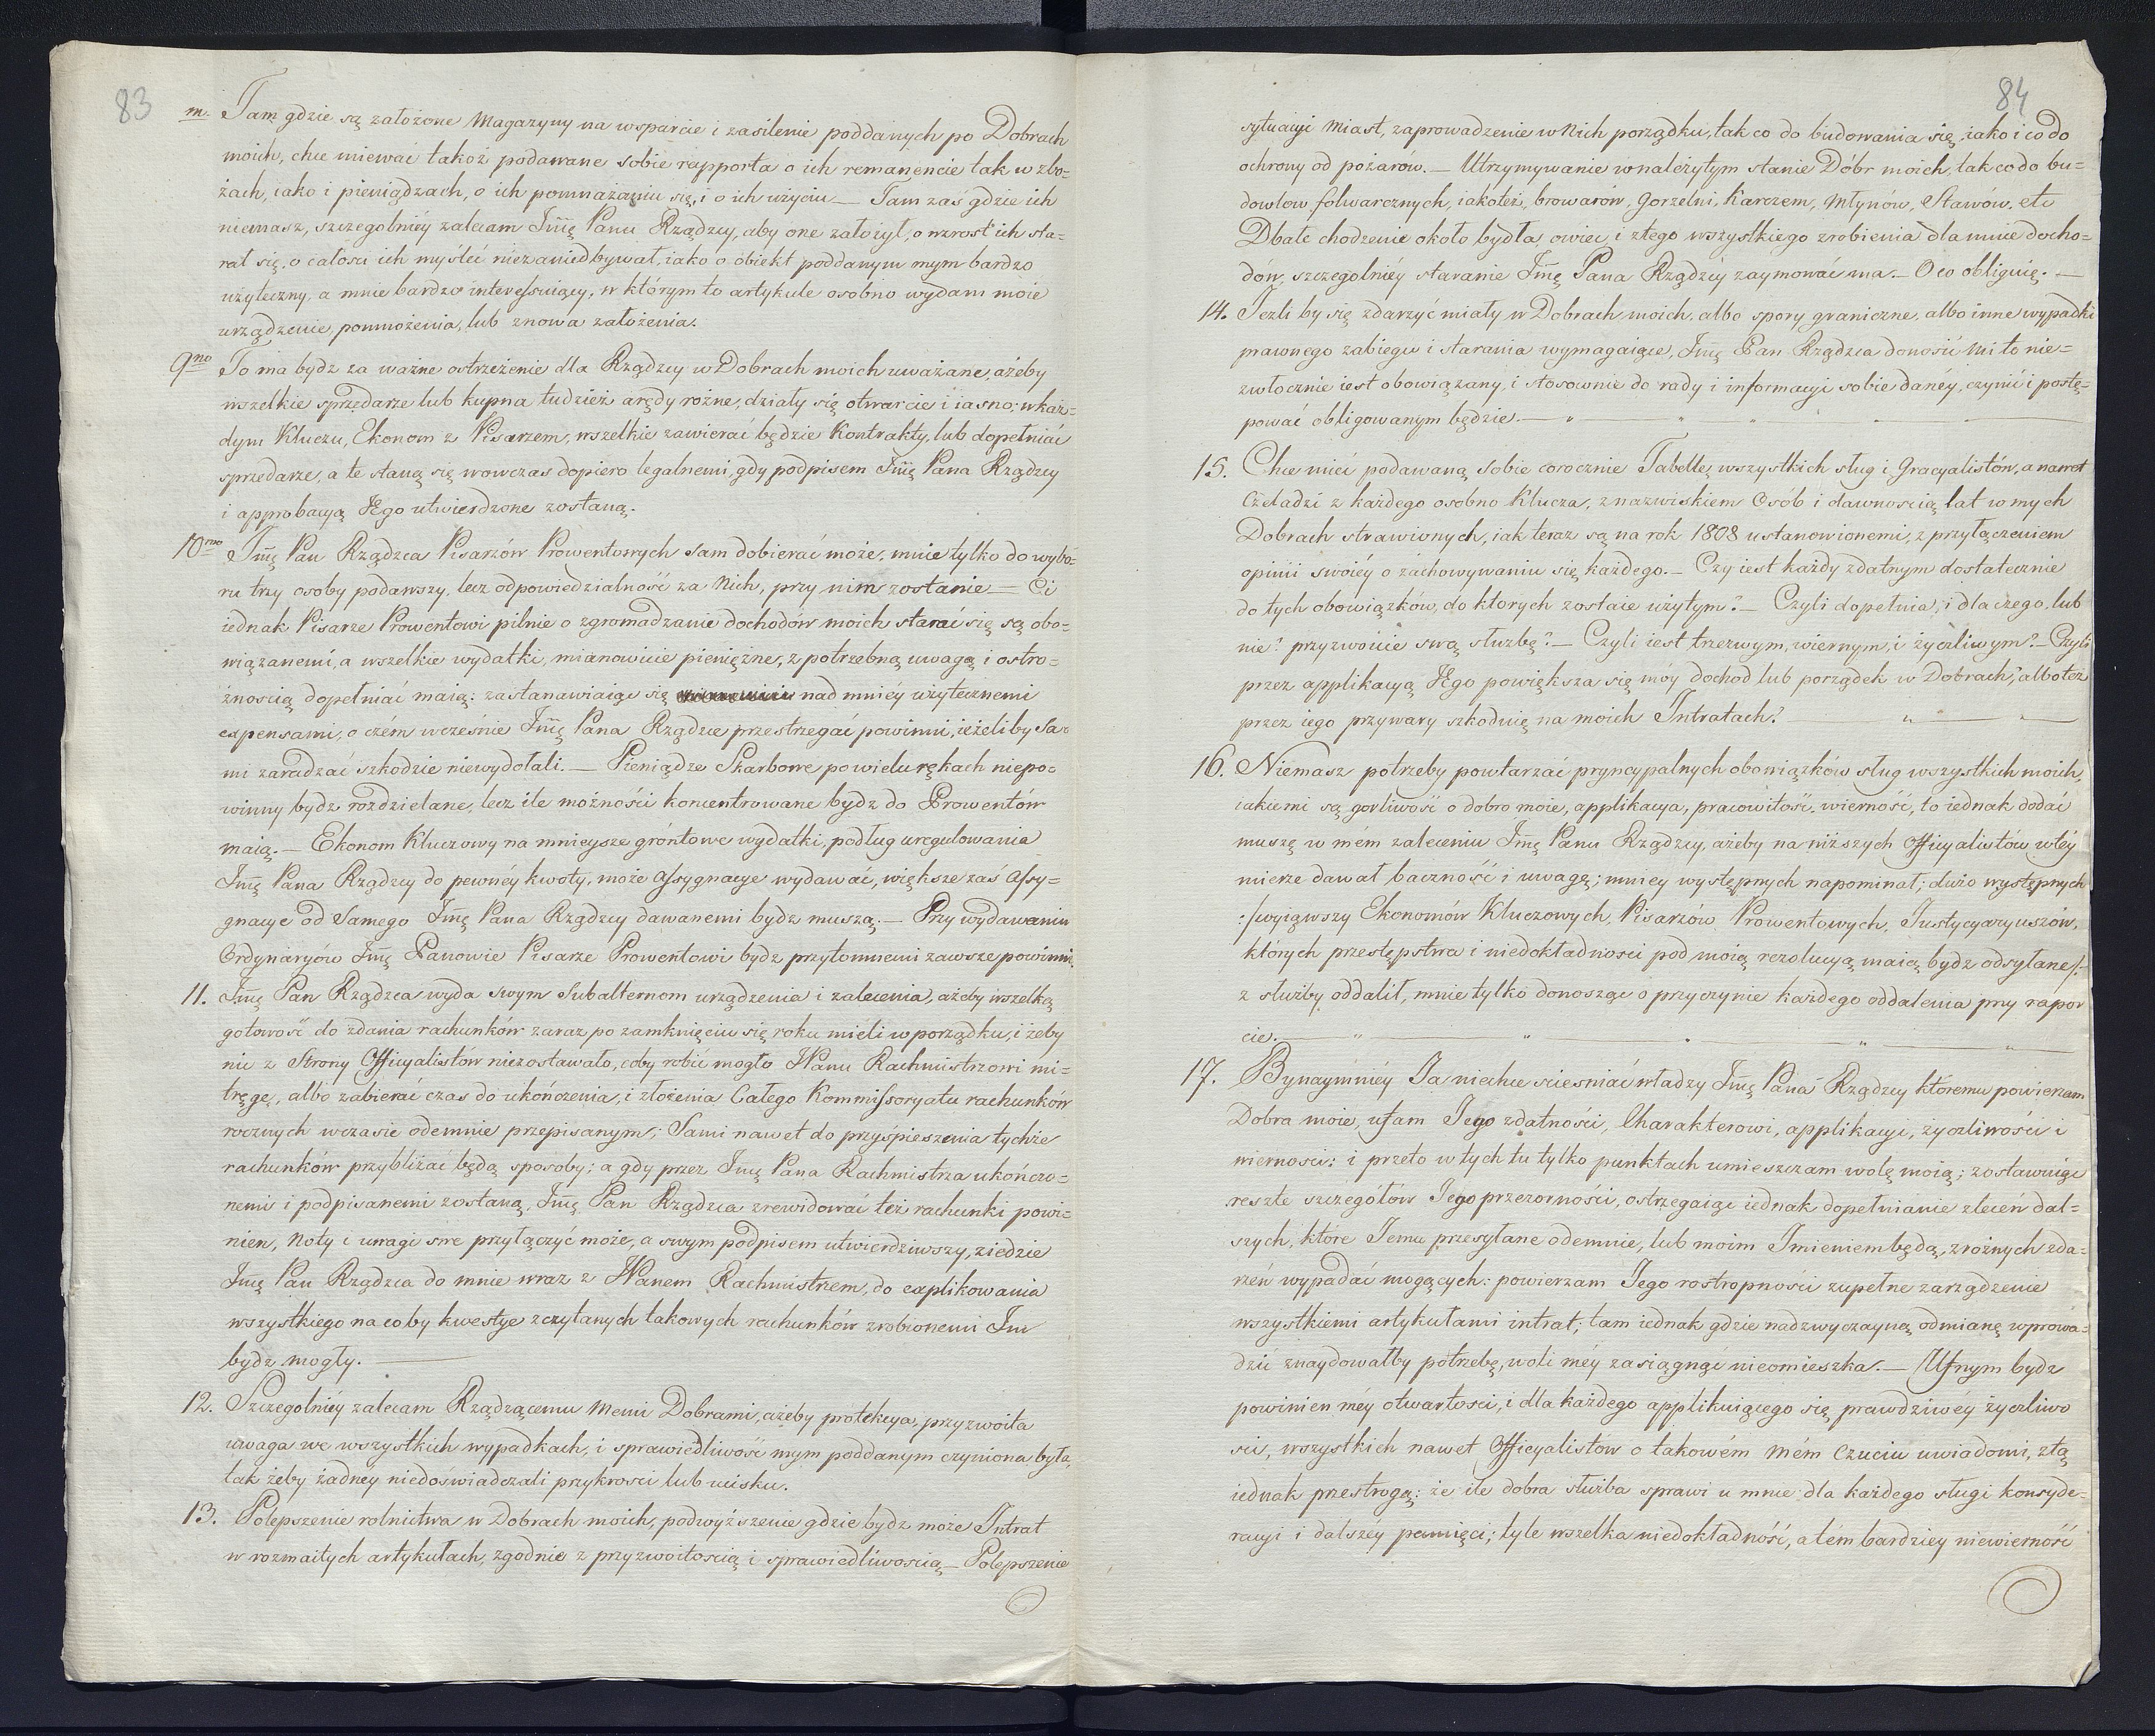 83
m. Tam gdzie są założone Magazyny na wsparcie i zasilenie poddanych po Dobrach
moich, chcę miewać takoż podawane sobie rapporta o ich remanencie tak w zbo-
żach, iako i pieniądzach, o ich pomnażaniu się, i o ich użyciu — Tam zaś gdzie ich
niemasz, szczegolniéy zalecam Jmc̃ Panu Rządzcy, aby one założył, o wzrost ich sta-
rał się, o całosci ich myśleć niezaniedbywał, iako o obiekt poddanym mym bardzo
użyteczny, a mnie bardzo interessuiący, w którym to artykule osobno wydam moie
urządzenie, pomnożenia, lub znowa założenia.
9no To ma bydz za ważne ostrzeżenie dla Rządzcy w Dobrach moich uważane, ażeby
wszelkie sprzedarze lub kupna tudzież arędy rożne, działy się otwarcie i iasno; w każ-
dym Kluczu, Ekonom z Pisarzem, wszelkie zawierać będzie Kontrakty, lub dopełniać
sprzedarze, a te staną się wowczas dopiero legalnemi, gdy podpisem Jmc̃ Pana Rządzcy
i approbacyą Jego utwierdzone zostaną.
10mo Jmc̃ Pan Rządzca Pisarzów Prowentowych sam dobierać może, mnie tylko do wybo-
ru trzy osoby podawszy, lecz odpowiedzialność za Nich, przy nim zostanie — Ci
iednak Pisarze Prowentowi pilnie o zgromadzanie dochodów moich starać się są obo-
wiązanemi, a wszelkie wydatki, mianowicie pieniężne, z potrzebną uwagą i ostro-
żnoscią dopełniać maią: zastanawiaiąc się nad mniéy użytecznemi
expensami, o czém wcześnie Jmc̃ Pana Rządzcę przestrzegać powinni, ieżeliby Sa-
mi zaradzać szkodzie niewydołali. — Pieniądze Skarbowe po wielu rękach niepo-
winny bydz rozdzielane, lecz ile możności koncentrowane bydz do Prowentów
maią. — Ekonom Kluczowy na mnieysze gróntowe wydatki, podług uregulowania
Jmc̃ Pana Rządzcy do pewnéy kwoty, może Assygnacye wydawać, większe zaś Assy-
gnacye od Samego Jmc̃ Pana Rządzcy dawanemi bydz muszą. — Przy wydawaniu
Ordynaryów Jmc̃ Panowie Pisarze Prowentowi bydz przytomnemi zawsze powinni.
11. Jmc̃ Pan Rządzca wyda swym Subalternom urządzenia i zalecenia, ażeby wszelką
gotowość do zdania rachunków zaraz po zamknięciu się roku mieli w porządku, i żeby
nic z Strony Officyalistów niezostawało, coby robić mogło WPanu Rachmistrzowi mi-
tręgę, albo zabierać czas do ukończenia, i złożenia Całego Kommissoryatu rachunków
rocznych wczasie odemnie przepisanym; Sami nawet do przyśpieszenia tychże
rachunków przybliżać będą sposoby; a gdy przez Jmc̃ Pana Rachmistrza ukończo-
nemi i podpisanemi zostaną, Jmc̃ Pan Rządzca zrewidować też rachunki powi-
nien, Noty i uwagi swe przyłączyć może, a swym podpisem utwierdziwszy, ziedzie
Jmc̃ Pan Rządzca do mnie wraz z WPanem Rachmistrzem, do explikowania
wszystkiego na coby kwestye z czytanych takowych rachunków zrobionemi Im
bydz mogły. —
12. Szczegolniéy zalecam Rządzącemu Memi Dobrami, ażeby protekcya, przyzwoita
uwaga we wszystkich wypadkach, i sprawiedliwość mym poddanym czyniona była,
tak żeby żadney niedoświadczali przykrosci lub ucisku.
13. Polepszenie rolnictwa w Dobrach moich, podwyższenie gdzie bydz może Intrat
w rozmaitych artykułach, zgodnie z przyzwoitoscią i sprawiedliwoscią — Polepszenie
84
sytuacyi Miast, zaprowadzenie w Nich porządku, tak co do budowania się, iako i co do
ochrony od pożarów. — Utrzymywanie w należytym stanie Dóbr moich, tak co do bu-
dowlow folwarcznych, iakoteż, browarów, Gorzelni, Karczem, Młynów, Stawów, etc
Dbałe chodzenie około bydła, owiec, i z tego wszystkiego zrobienia dla mnie docho-
dów, szczegolniéy staranie Jmc̃ Pana Rządzcy zaymować ma. — O co obliguię. —
14. Jezliby się zdarzyć miały w Dobrach moich, albo spory graniczne, albo inne wypadki
prawnego zabiegu i starania wymagaiące, Jmc̃ Pan Rządzca donosić Mi to nie-
zwłocznie iest obowiązany, i stosownie do rady i informacyi sobie danéy, czynić i postę-
pować obligowanym będzie. —
15. Chcę mieć podawaną sobie corocznie Tabellę wszystkich sług i Gracyalistów, a nawet
Czeladzi z każdego osobno Klucza, z nazwiskiem Osób i dawnoscią lat w mych
Dobrach strawionych, iak teraz są na rok 1808 ustanowionemi, z przyłączeniem
opinii swoiéy o zachowywaniu się każdego. — Czy iest każdy zdatnym dostatecznie
do tych obowiązków, do ktorych zostaie użytym? — Czyli dopełnia, i dla czego, lub
nie? przyzwoicie swą służbę? — Czyli iest trzezwym, wiernym, i życzliwym? — Czyli
przez applikacyą Jego powiększa się móy dochod lub porządek w Dobrach, albo też
przez iego przywary szkoduię na moich Intratach?
16. Niemasz potrzeby powtarzać pryncypalnych obowiązków sług wszystkich moich,
iakiemi są gorliwość o dobro moie, applikacya, pracowitość, wierność, to iednak dodać
muszę w mém zaleceniu Jmc̃ Panu Rządzcy, ażeby na niższych Officyalistów w téy
mierze dawał baczność i uwagę; mniey występnych napominał; dużo występnych
:/wyiąwszy Ekonomów Kluczowych, Pisarzów Prowentowych, Justycyaryuszów,
których przestępstwa i niedokładnosci pod moią rezolucyą maią bydz odsyłane/:
z służby oddalił, mnie tylko donosząc o przyczynie każdego oddalenia przy rapor
cie. —
17. Bynaymniéy Ja niechcę sciesniać władzy Jmc̃ Pana Rządzcy któremu powierzam
Dobra moie, ufam Jego zdatności, Charakterowi, applikacyi, życzliwości i
wiernosci: i przeto w tych tu tylko punktach umieszczam wolę moią; zostawuiąc
reszte szczegółów Jego przezorności, ostrzegaiąc iednak dopełnianie zleceń dal-
szych, które Jemu przesyłane odemnie, lub moim Imieniem będą, z rożnych zda-
rzeń wypadać mogących: powierzam Jego rostropności zupełne zarządzenie
wszystkiemi artykułami intrat; tam iednak gdzie nadzwyczayną odmianę wprowa-
dzić znaydowałby potrzebę, woli méy zasiągnąć nieomieszka. — Ufnym bydz
powinien méy otwartosci, i dla każdego applikuiącego się, prawdziwéy życzliwo
sci, wszystkich nawet Officyalistów o takowém Mém Czuciu uwiadomi, z tą
iednak przestrogą: że ile dobra służba sprawi u mnie dla każdego sługi konsyde-
racyi i dalszéy pamięci; tyle wszelka niedokładność, a tém bardziey niewierność